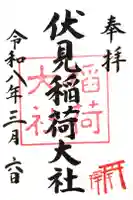 奉拝
伏見稲荷大社
稲荷
大社
令和八年三月六日